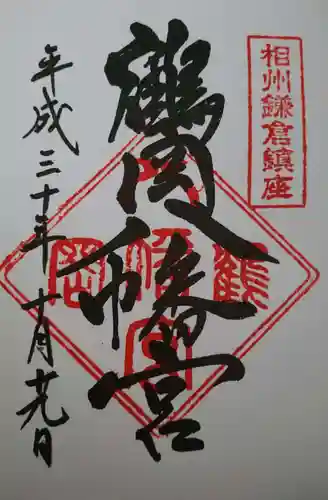 相州鎌倉鎮座
鶴岡八幡宮
平成三十年十月廿九日